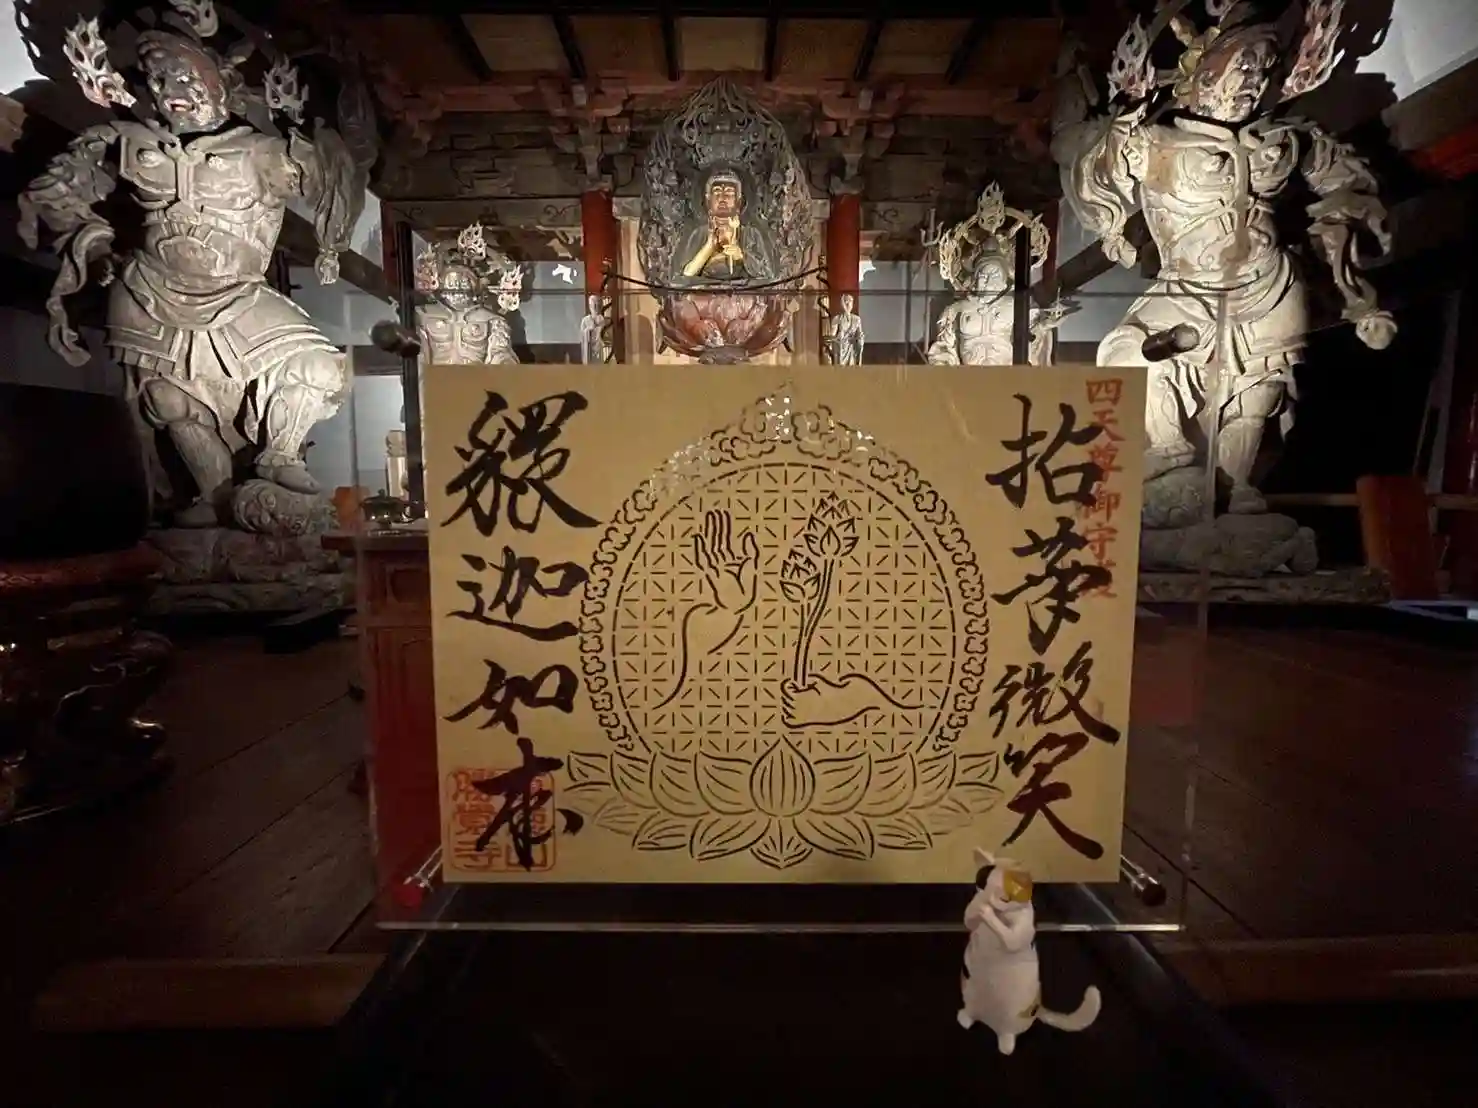 四天尊御守護
拈華微笑
釋迦如来
山
勝覺寺